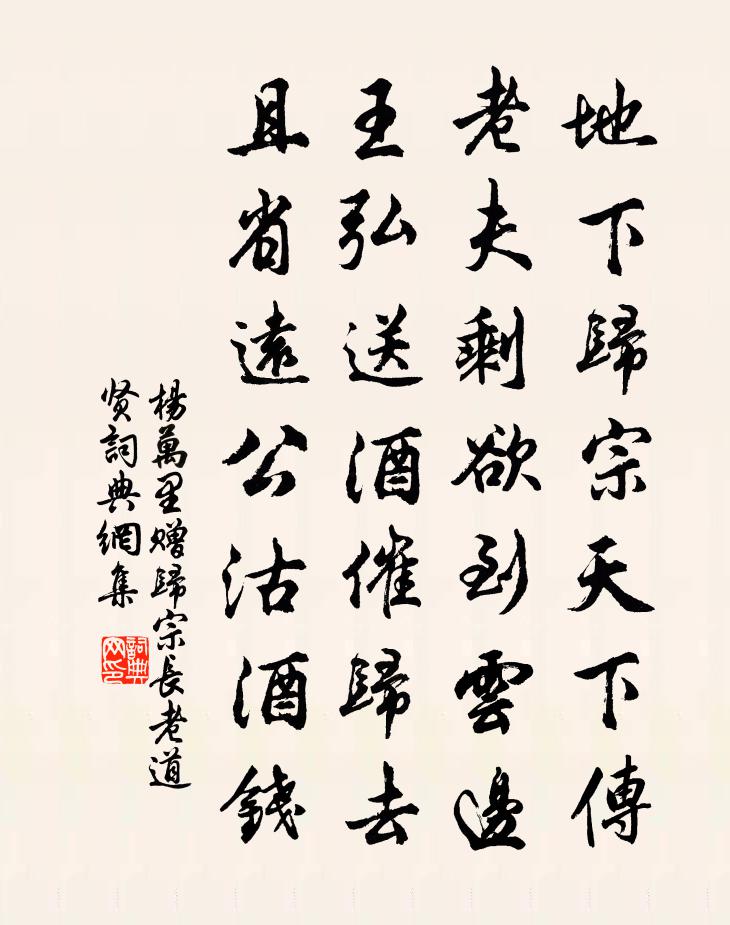 地下歸宗天下傳
老夫剩欲到雲邊
王弘送酒催歸去
且省遠公沽酒錢
楊萬里贈歸宗長老道
贤詞典網集
詞典
网印